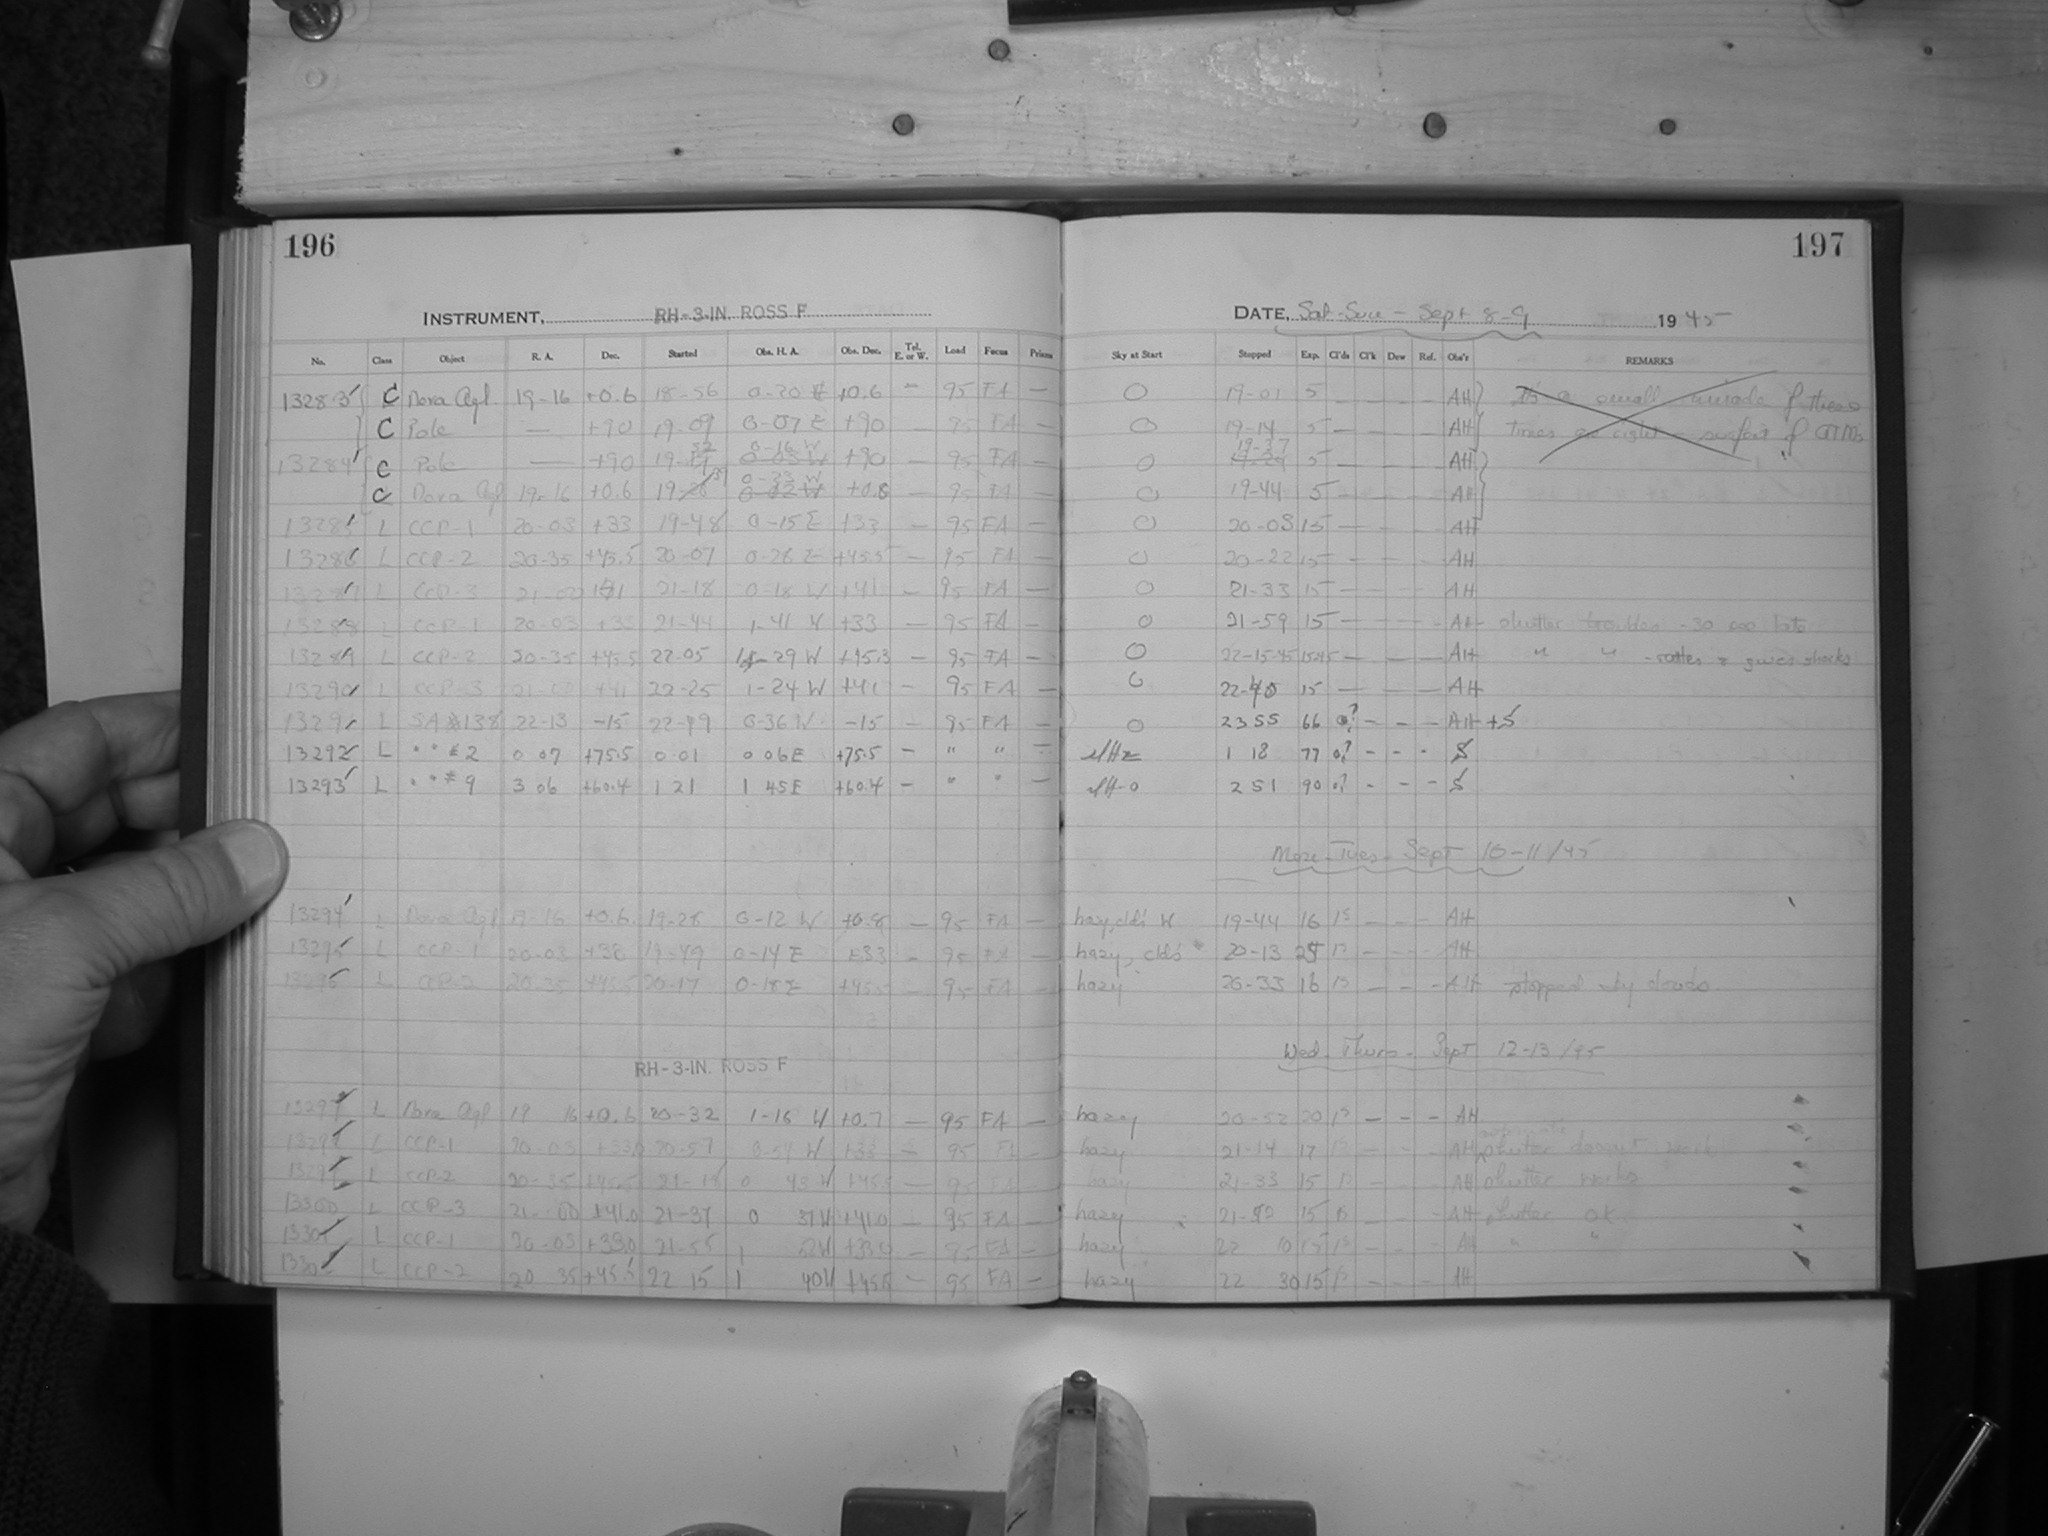 196
INSTRUMENT, RH-3-IN. ROSS F
No. Class Object R. A. Dec. Started Obs. H. A. Obs. Dec. Tel. E. or W. Load Focus Prisms
13283 C Nova Aql 19-16 +0.6 18-56 0-20 E +0.6 - 95 FA -
C Pole - +90 19-09 0-07 E +90 - 95 FA -
13284 C Pole - +90 0-16 W +90 - 95 FA -
C Nova Aql 19-16 +0.6 +0.8 - 95 FA -
13285 L CCP-1 20-03 +33 19-48 0-15 E +33 - 95 FA -
13286 L CCP-2 20-35 +45.5 20-07 0-28 E +45.5 - 95 FA -
13287 L CCP-3 21-18 0-18 W +41 - 95 FA -
13288 L CCP-1 20-03 +33 21-44 1-41 W +33 - 95 FA -
13289 L CCP-2 20-35 +45.5 22-05 1-29 W - 95 FA -
13290 L CCP-3 +41 22-25 1-24 W +41 - 95 FA -
13291 L SA#138 22-13 -15 0-36 W -15 - 95 FA -
13292 L " " #2 0 07 +75.5 0 01 0 06E +75.5 - " " -
13293 L " " #9 3 06 +60.4 1 21 1 45E +60.4 - " " -
13294 L Nova Aql 19-16 +0.6 19-28 0-12 W +0.8 - 95 FA -
13295 L CCP-1 20-03 19-49 0-14 E +33 - 95 FA -
13296 L CCP-2 20-35 +45.5 20-17 0-18 E +45.5 - 95 FA -
RH-3-IN. ROSS F
13297 L Nova Aql 19 16 +0.6 20-32 1-16 W +0.7 - 95 FA -
13298 L CCP-1 20-03 +33.0 20-57 0-54 W +33 - 95 FA
13299 L CCP-2 20-35 +45.5 21-18 0 43 W - 95 FA -
13300 L CCP-3 21-00 +41.0 21-37 0 37 W +41.0 - 95 FA -
13301 L CCP-1 20-03 +33.0 21-55 1 52W - 95 FA -
13302 L CCP-2 20 35 +45.5 22 15 1 40W - 95 FA -
197
DATE, Sat-Sun - Sept 8-9 1945
Sky at Start Stopped Exp. Cl'ds Cl'k Dew Ref. Obs'r REMARKS
O 19-01 5 - - - - AH It's a small miracle if these
O 19-14 5 - - - - AH times are right -
O 19-37 5 - - - - AH
O 19-44 5 - - - - AH
O 20-03 15 - - - - AH
O 20-22 15 - - - - AH
O 21-33 15 - - - - AH
O 21-59 15 - - - - AH shutter troubles - 30 sec late
O 22-15-45 15-45 - - - - AH " " - rattles & gives shocks
O 22-40 15 - - - - AH
O 23 55 66 0? - - - AH + S
slHz 1 18 77 0? - - - S
slH-0 2 51 90 0? - - - S
Mon-Tues- Sept 10-11/45
hazy, clds W 19-44 16 - - - AH
hazy, clds 20-13 - - - AH
hazy 20-33 16 - - - AH stopped by clouds
Wed-Thurs- Sept 12-13/45
hazy 20-52 20 - - - AH
hazy 21-14 17 - - - AH automatic shutter doesn't work
hazy 21-33 15 - - - AH shutter works
hazy 15 - - - AH shutter OK.
hazy 22 10 15 - - - AH " "
hazy 22 30 15 - - - AH